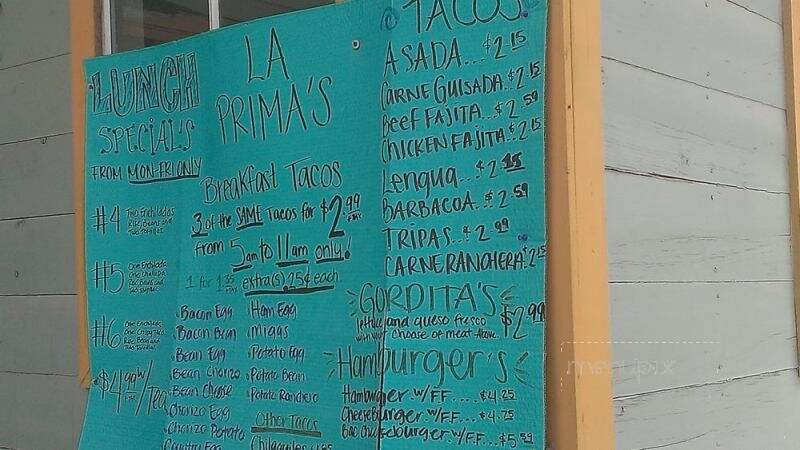 LUNCH
SPECIAL'S
FROM MON-FRI ONLY
#4 Two Enchiladas
Rice, Beans and
Two Tortillas
#5 One Enchilada
One Chalupa
Rice Beans and
#6 One Enchilada
One Crispy Taco
Rice Beans and
Two Tortillas
$4.99 w/
Tea
LA
PRIMA'S
Breakfast Tacos
3 of the SAME Tacos for $2.99
from 5am to 11am only!
1 for 1.35 extra(s) .25¢ each
Bacon Egg
Bacon Bean
Bean Egg
Bean Chorizo
Bean Cheese
Chorizo Egg
Chorizo Potato
Country Egg
Ham Egg
Migas
Potato Egg
Potato Bean
Potato Ranchero
Other Tacos
Chilaquiles
TACOS
ASADA...$2.15
CARNE GUISADA..$2.15
Beef FAJITA...$2.59
CHICKEN FAJITA..$2.15
Lengua...$2
BARBACOA..$2.59
TRIPAS..$2.99
CARNE RANCHERA.$2.15
GORDITA'S
lettuce and queso fresco
with your choose of meat Above. $2.99
Hamburger's
Hamburger w/FF....$4.25
CheeseBurger w/FF....$4.75
Bac Cheeseburger w/FF...$5.59
menupix